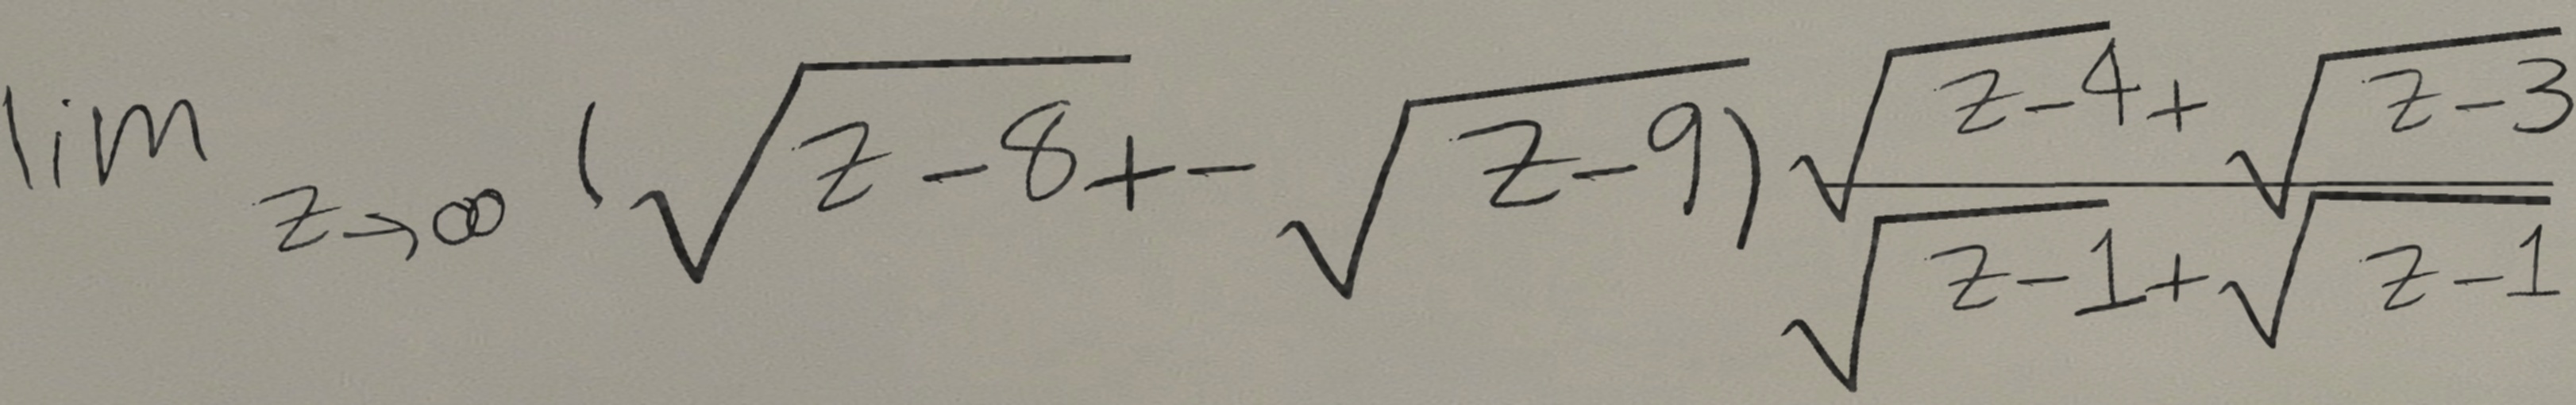 \lim_{z \to \infty} (\sqrt{z-8} + -\sqrt{z-9}) \frac{\sqrt{z-4} + \sqrt{z-3}}{\sqrt{z-1} + \sqrt{z-1}}